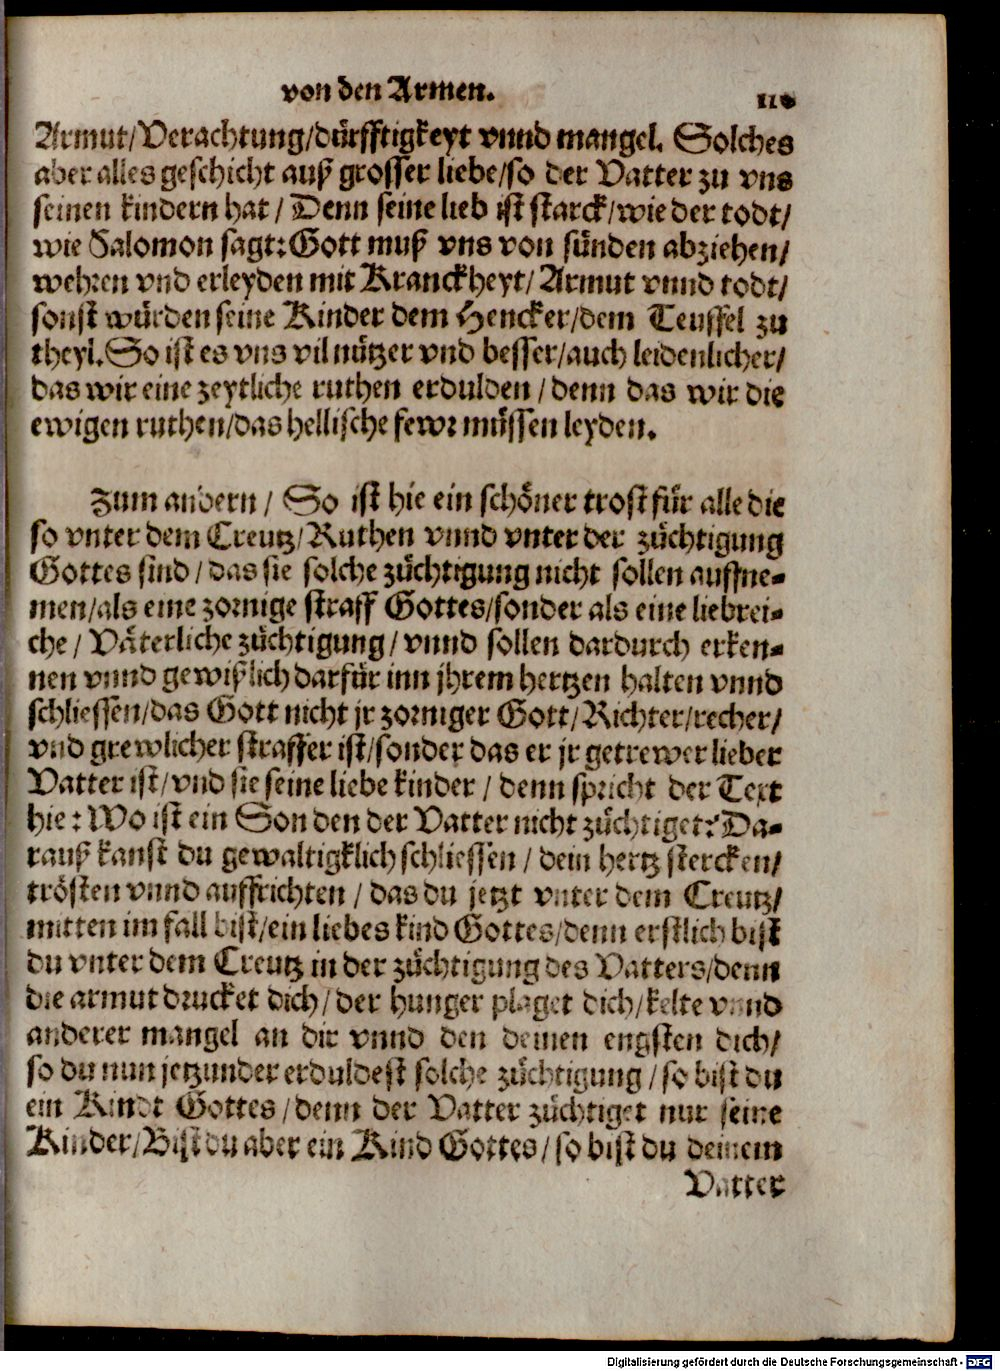 von den Armen.
Armut/Verachtung/dürfftigkeyt vnnd mangel. Solches
aber alles geschicht auß grosser liebe/so der Vatter zu vns
seinen kindern hat / Denn seine lieb ist starck/wie der todt/
wie Salomon sagt: Gott muß vns von sünden abziehen/
wehren vnd erleyden mit Kranckheyt/ Armut vnnd todt/
sonst würden seine Kinder dem Hencker/dem Teuffel zu
theyl. So ist es vns vil nützer vnd besser/auch leidenlicher/
das wir eine zeytliche ruthen erdulden / denn das wir die
ewigen ruthen/das hellische fewr müssen leyden.
Zum andern / So ist hie ein schöner trost für alle die
so vnter dem Creutz/Ruthen vnnd vnter der züchtigung
Gottes sind / das sie solche züchtigung nicht sollen auffne-
men/als eine zornige straff Gottes/sonder als eine liebrei-
che / Väterliche züchtigung / vnnd sollen dardurch erken-
nen vnnd gewißlich darfür inn jhrem hertzen halten vnnd
schliessen/das Gott nicht jr zorniger Gott/Richter/recher/
vnd grewlicher straffer ist/sonder das er jr getrewer lieber
Vatter ist/vnd sie seine liebe kinder / denn spricht der Text
hie: Wo ist ein Son den der Vatter nicht züchtiget? Da-
rauß kanst du gewaltigklich schliessen / dein hertz stercken/
trösten vnnd auffrichten / das du jetzt vnter dem Creutz/
mitten im fall bist/ein liebes kind Gottes/denn erstlich bist
du vnter dem Creutz in der züchtigung des Vatters/denn
die armut drucket dich/ der hunger plaget dich/kelte vnnd
anderer mangel an dir vnnd den deinen engsten dich/
so du nun jetzunder erduldest solche züchtigung / so bist du
ein Kindt Gottes / denn der Vatter züchtiget nur seine
Kinder/Bist du aber ein Kind Gottes / so bist du deinem
Vatter
Digitalisierung gefördert durch die Deutsche Forschungsgemeinschaft - DFG